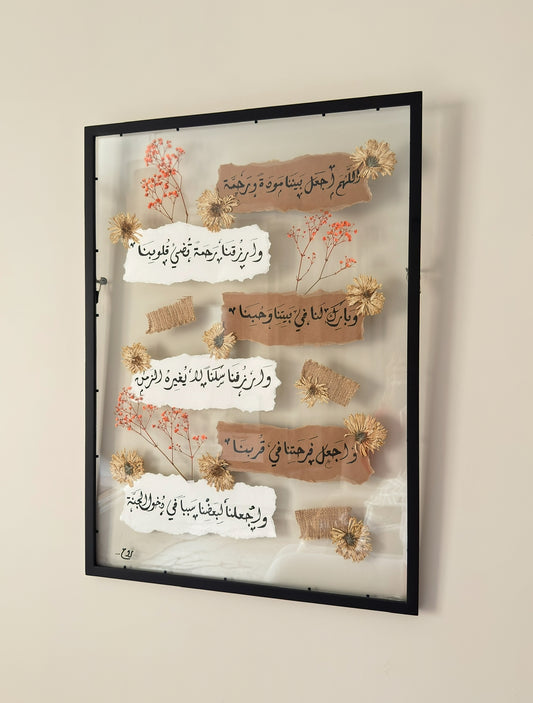 اللهم اجعل بيننا مودة ورحمة
وارزقنا رحمة تضيء قلوبنا
وبارك لنا في بيتنا وحبنا
وارزقنا سكنا لا يغيره الزمن
واجعل فرحتنا في قربنا
واجعلنا لبعضنا سببا في دخول الجنة
روح